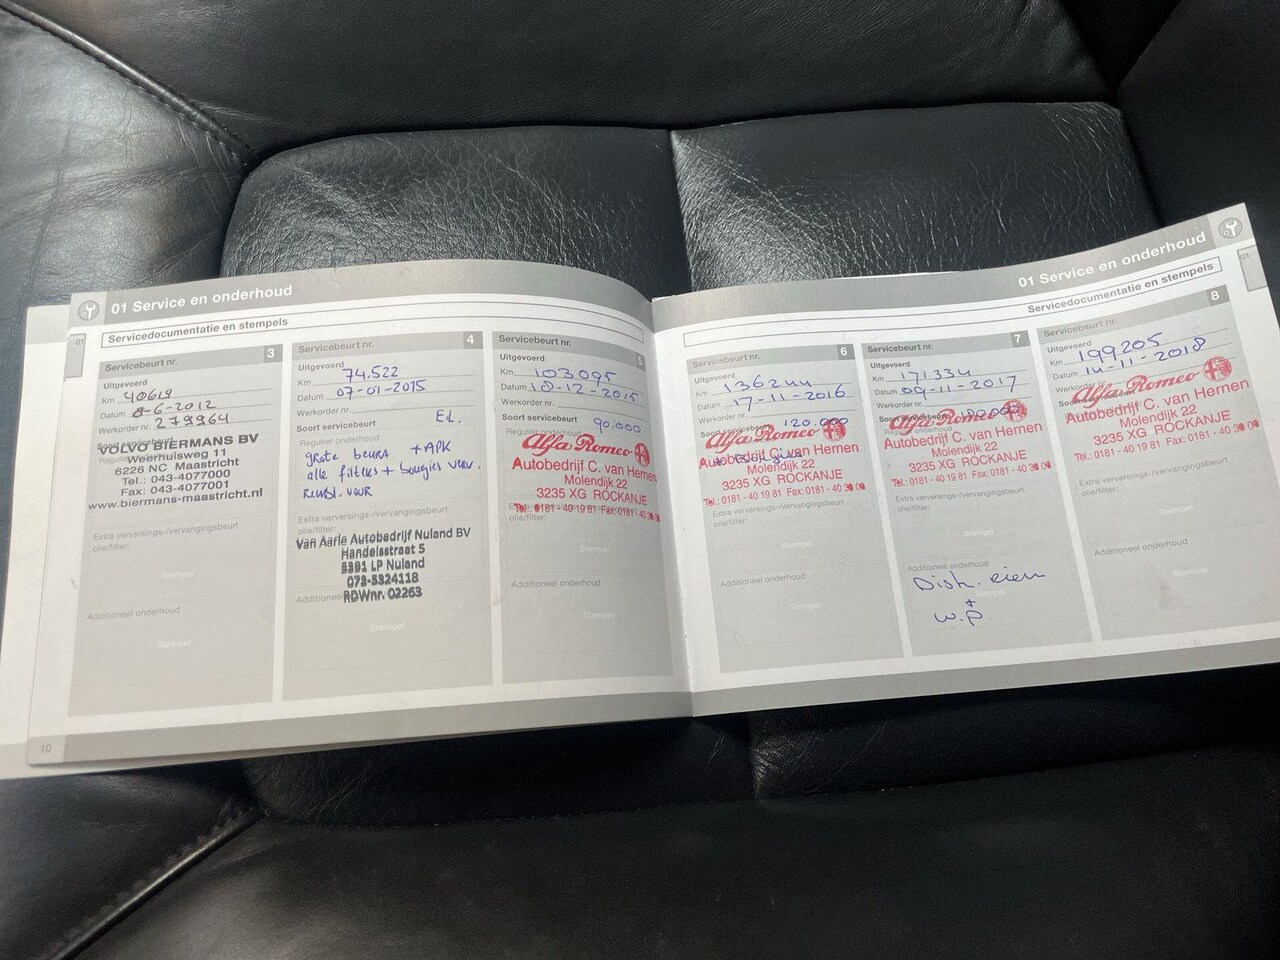 01 Service en onderhoud
Servicedocumentatie en stempels
01
Servicebeurt nr. 3
Uitgevoerd
Km 40619
Datum 8-6-2012
Werkorder nr. 279964
Soort servicebeurt
VOLVO BIERMANS BV
Weerhuisweg 11
6226 NC Maastricht
Tel.: 043-4077000
Fax: 043-4077001
www.biermans-maastricht.nl
Extra verversings-/vervangingsbeurt
olie/filter:
Stempel
Additioneel onderhoud
Stempel
Servicebeurt nr. 4
Uitgevoerd
Km 74.522
Datum 07-01-2015
Werkorder nr.
Soort servicebeurt
Regulier onderhoud
grote beurt + APK
alle filters + bougies verv.
Extra verversings-/vervangingsbeurt
olie/filter:
Van Aarle Autobedrijf Nuland BV
Handelsstraat 5
5391 LP Nuland
073-5324118
RDWnr. 02263
Additioneel
Stempel
Servicebeurt nr. 5
Uitgevoerd
Km 103095
Datum 18-12-2015
Werkorder nr.
Soort servicebeurt 90.000
Regulier onderhoud
Alfa Romeo
Autobedrijf C. van Hernen
Molendijk 22
3235 XG ROCKANJE
Tel.: 0181 - 40 19 81 Fax: 0181 - 40
olie/filter:
Stempel
Additioneel onderhoud
Stempel
10
01 Service en onderhoud
Servicedocumentatie en stempels
01
Servicebeurt nr. 6
Uitgevoerd
Km 136244
Datum 17-11-2016
Werkorder nr.
Soort 120.000
Alfa Romeo
Autobedrijf C. van Hernen
Molendijk 22
3235 XG ROCKANJE
Tel.: 0181 - 40 19 81 Fax: 0181 - 40
Extra verversings-/vervangingsbeurt
olie/filter:
Stempel
Additioneel onderhoud
Stempel
Servicebeurt nr. 7
Uitgevoerd
Km 171334
Datum 09-11-2017
Werkorder nr.
Soort servicebeurt
Alfa Romeo
Autobedrijf C. van Hernen
Molendijk 22
3235 XG ROCKANJE
Tel.: 0181 - 40 19 81 Fax: 0181 - 40
Extra verversings-/vervangingsbeurt
olie/filter:
Stempel
Additioneel onderhoud
Distr. riem
+
w.p.
Servicebeurt nr. 8
Uitgevoerd
Km 199205
Datum 14-11-2018
Werkorder nr.
Soort servicebeurt
Alfa Romeo
Autobedrijf C. van Hernen
Molendijk 22
3235 XG ROCKANJE
Tel.: 0181 - 40 19 81 Fax: 0181 - 40
Extra verversings-/vervangingsbeurt
olie/filter:
Stempel
Additioneel onderhoud
Stempel